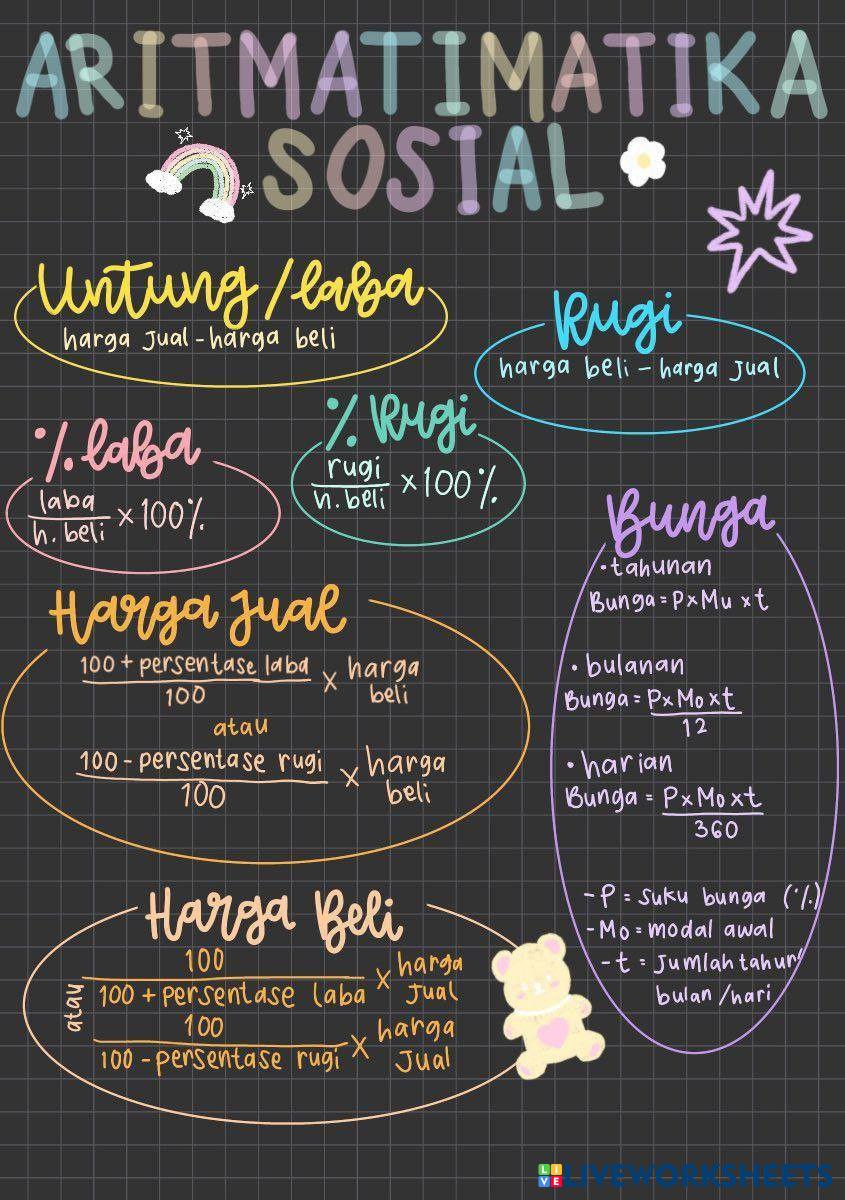 ARITMATIMATIKA
SOSIAL
Untung / laba
harga jual - harga beli
Rugi
harga beli - harga jual
% laba
laba
h. beli
× 100%
% Rugi
rugi
h. beli
× 100%
Harga Jual
100 + persentase laba
100
× harga
beli
atau
100 - persentase rugi
100
× harga
beli
Bunga
• tahunan
Bunga = P×Mu ×t
• bulanan
Bunga = P×Mo×t
12
• harian
Bunga = P×Mo×t
360
- P = suku bunga (%)
- Mo = modal awal
- t = Jumlah tahun/
bulan /hari
Harga Beli
100
100 + persentase laba
× harga
Jual
atau
100
100 - persentase rugi
× harga
Jual
LIVE LIVEWORKSHEETS